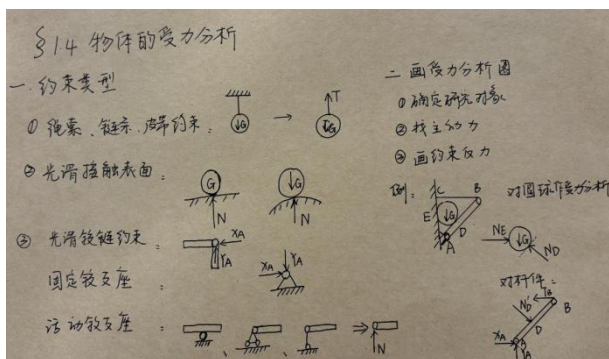 §1.4 物体的受力分析
一. 约束类型
① 绳索、链条、皮带约束：
G
T
G
② 光滑接触表面：
G
N
G
N
③ 光滑铰链约束：
XA
YA
固定铰支座：
XA
YA
活动铰支座：
N
二 画受力分析图
① 确定研究对象
② 找主动力
③ 画约束反力
例：
C
B
E
G
D
A
对圆球作受力分析
NE
G
ND
对杆件：
TB
B
ND'
D
XA
YA